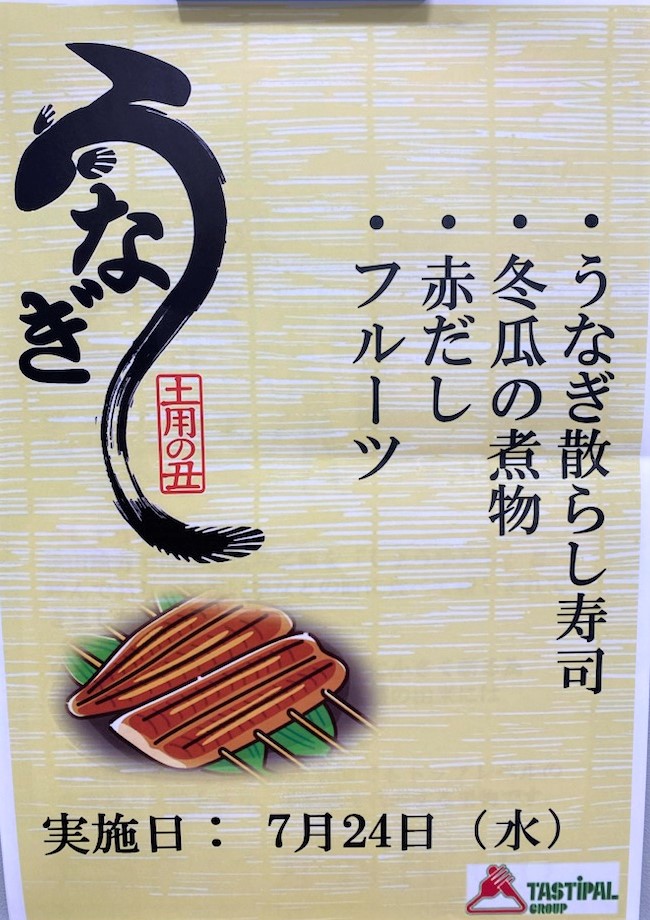 うなぎ
土用の丑
・うなぎ散らし寿司
・冬瓜の煮物
・赤だし
・フルーツ
実施日： 7月24日（水）
TASTiPAL
GROUP